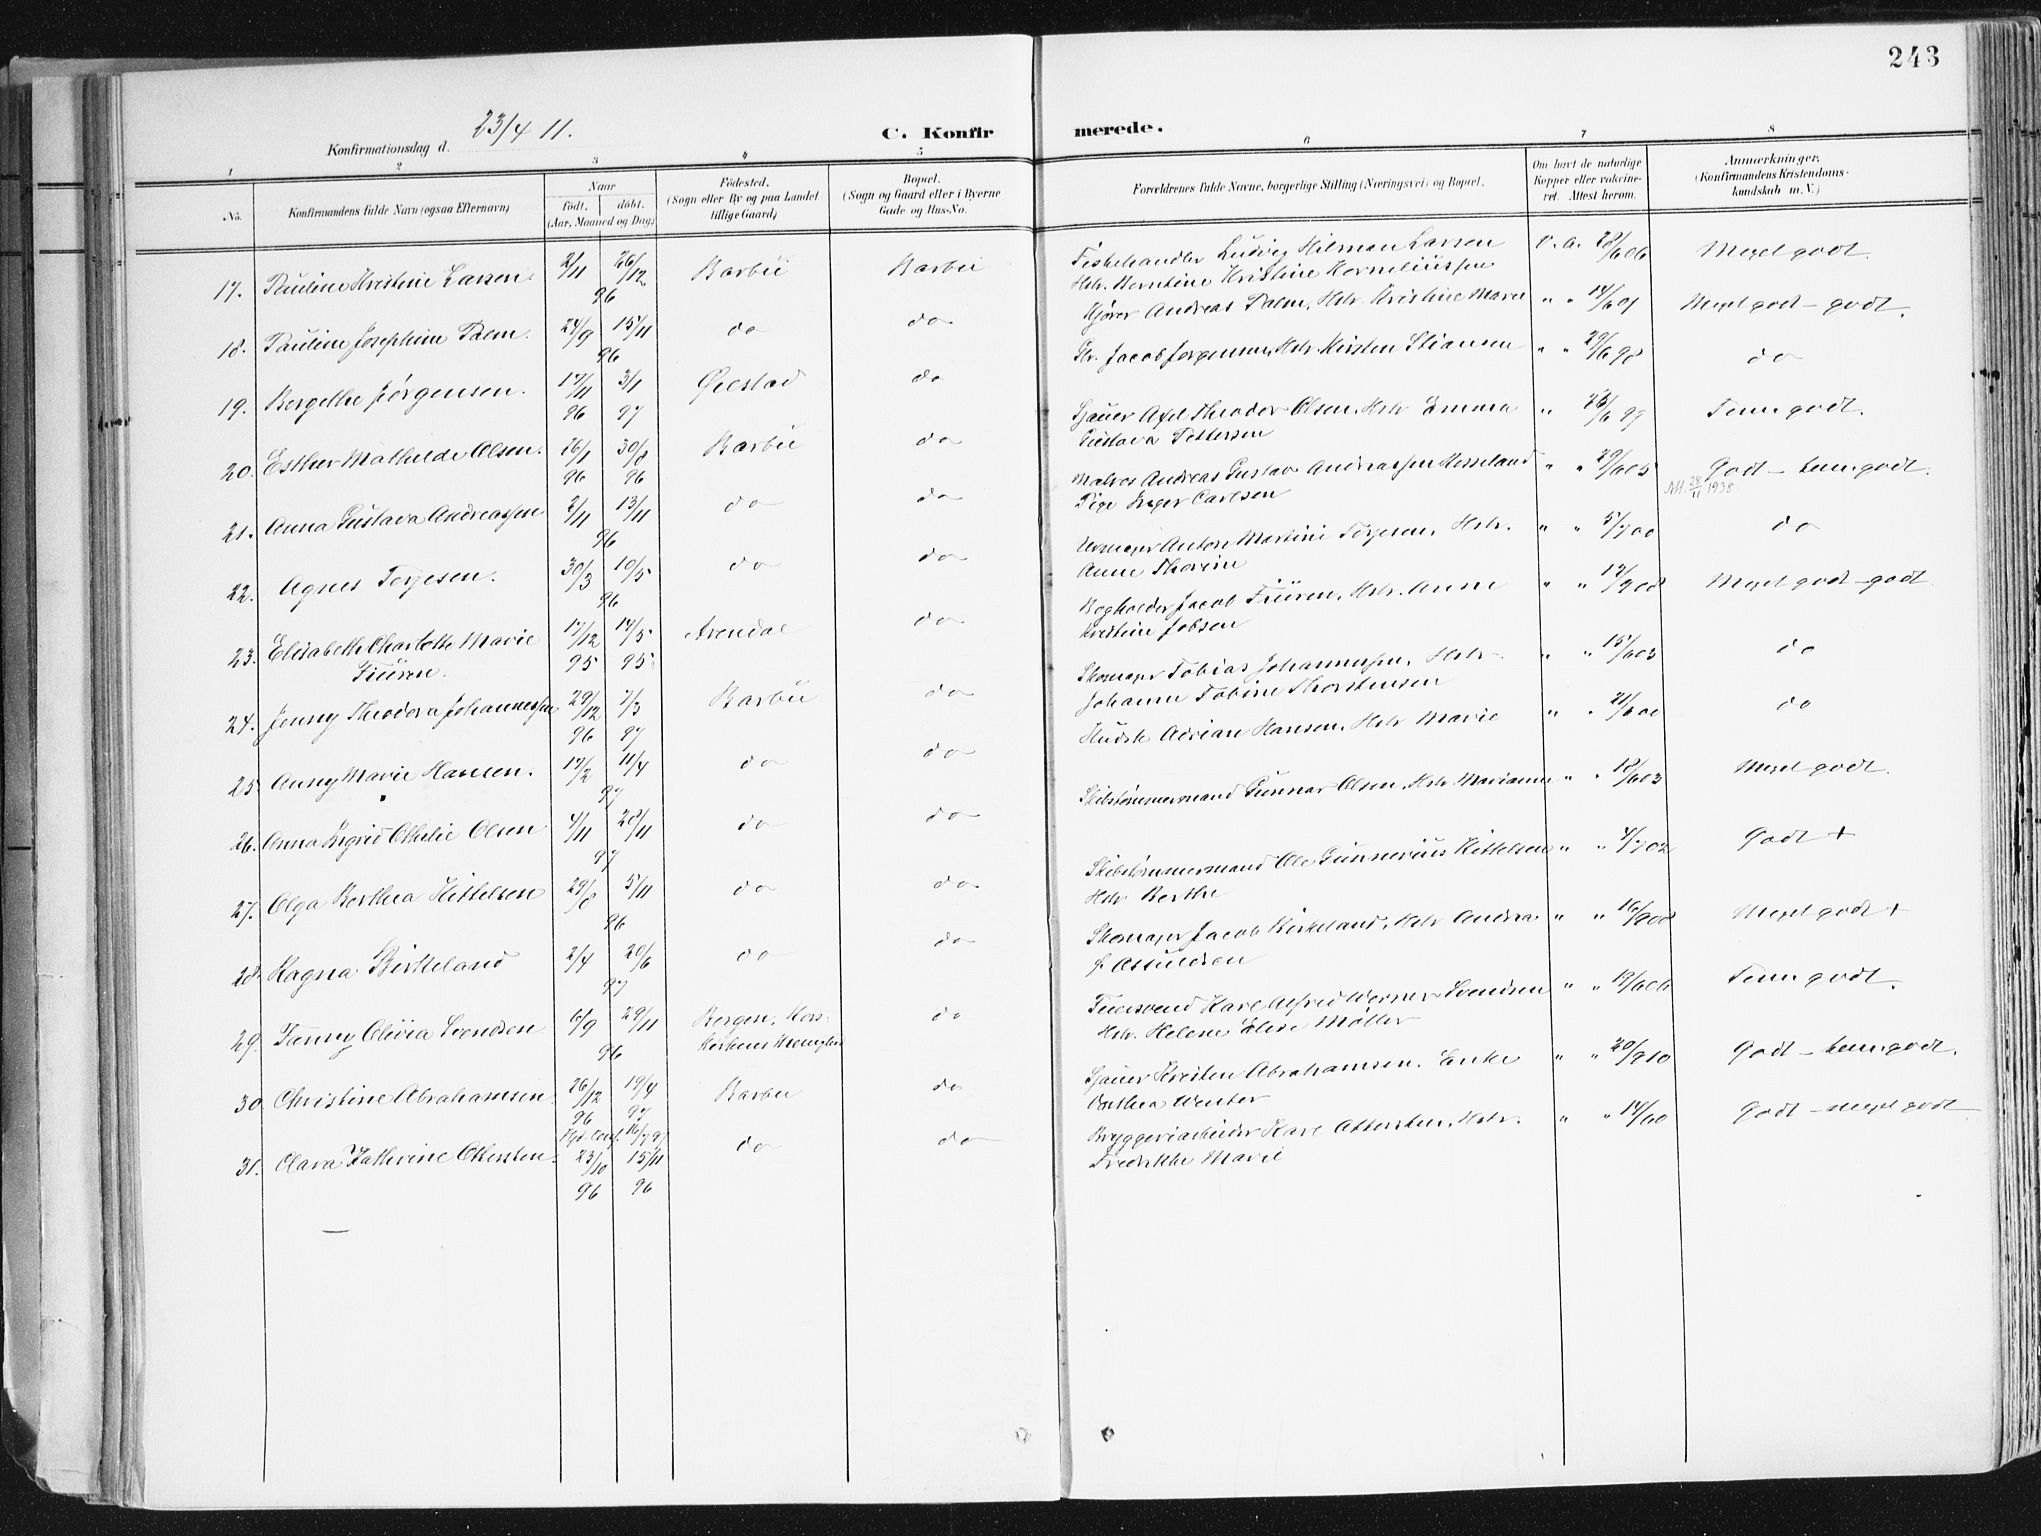 243
Konfirmationsdag d. 23/4 11.
C. Konfirmerede.
1 2 3 4 5 6 7 8
No.
Konfirmandens fulde Navn (ogsaa Efternavn)
Naar
født. døbt.
(Aar, Maaned og Dag)
Fødested.
(Sogn eller By og paa Landet
tillige Gaard)
Bopæl.
(Sogn og Gaard eller i Byerne
Gade og Hus-No.
Forældrenes fulde Navne, borgerlige Stilling (Næringsvei) og Bopæl.
Om havt de naturlige
Kopper eller vakcine-
ret. Attest herom.
Anmærkninger.
(Konfirmandens Kristendoms-
kundskab m. V.)
17. Pauline Kristine Larsen 2/11 26/12 96 Barbu Barbu Fiskehandler Ludvig Hilman Larsen v. a. 28/6 06 Meget godt.
Hstr. Berntine Kristine Korneliussen
18. Pauline Josephine Palm. 24/9 15/11 96 do do Kjører Andreas Palm, Hstr. Kristine Marie " " 14/6 01 Meget godt – godt.
19. Bergithe Jørgensen. 17/11 96 3/1 97 Øiestad do Jacob Jørgensen, Hstr. Kirsten Stiansen " " 29/6 98 do
20. Esther Mathilde Olsen. 26/1 96 30/8 96 Barbu do Sjauer Axel Theodor Olsen, Hstr Emma " 23/6 99 Temgodt.
Gustava Pettersen
21. Anna Gustava Andreassen 2/11 13/11 96 do do Matros Andreas Gustav Andreassen Hesseland " " 29/6 05 Godt – temgodt.
Pige Inger Carlsen
28/11 1938
22. Agnes Terjesen. 30/3 10/5 96 do do Anton Martini Terjesen, Hstr. " " 5/7 00 do
Anne Thorine
23. Elisabeth Charlotte Marie 17/12 95 14/5 95 Arendal do Bogholder Jacob Füren, Hstr. Anne " " 17/9 08 Meget godt – godt
Füren. Kristine Jobsen
24. Jenny Theodora Johannessen 29/12 96 7/3 97 Barbu do Skomager Tobias Johannessen, Hstr. " " 15/6 03 do
Johanne Tobine Thorstensen
25. Anny Marie Hansen. 17/2 11/4 97 do do Adrian Hansen, Hstr Marie " " 21/6 01 do
26. Anna Ingrid Othilie Olsen 4/11 28/11 97 do do Skibstømmermand Gunnar Olsen, Hstr Marianne " " 18/6 03 Meget godt.
27. Olga Berthea Kittelsen 29/8 5/11 96 do do Skibstømmermand Ole Gunnerius Kittelsen " " 4/7 02 Godt +
Hstr Berthe
28. Ragna Birkeland 2/4 20/6 97 do do Skomager Jacob Birkeland, Hstr Andrea " " 16/9 08 Meget godt +
f. Assuldsen
29. Fanny Olivia Svendsen 6/9 29/11 96 Bergen, Kors- do Karl Alfred Werner Svendsen " " 19/6 06 Temgodt.
kirkens Menighed Hstr. Helene Elise Møller
30. Christine Abrahamsen. 26/12 96 19/4 97 Barbu do Sjauer Kristen Abrahamsen. Enke " " 20/9 10 Godt – temgodt.
Winter
31. Clara Katherine Ottersten. 23/10 96 15/11 96 do do Bryggeriarbeider Karl Ottersten, Hstr. " " 14/6 0 Godt – meget godt
Fredrikke Marie